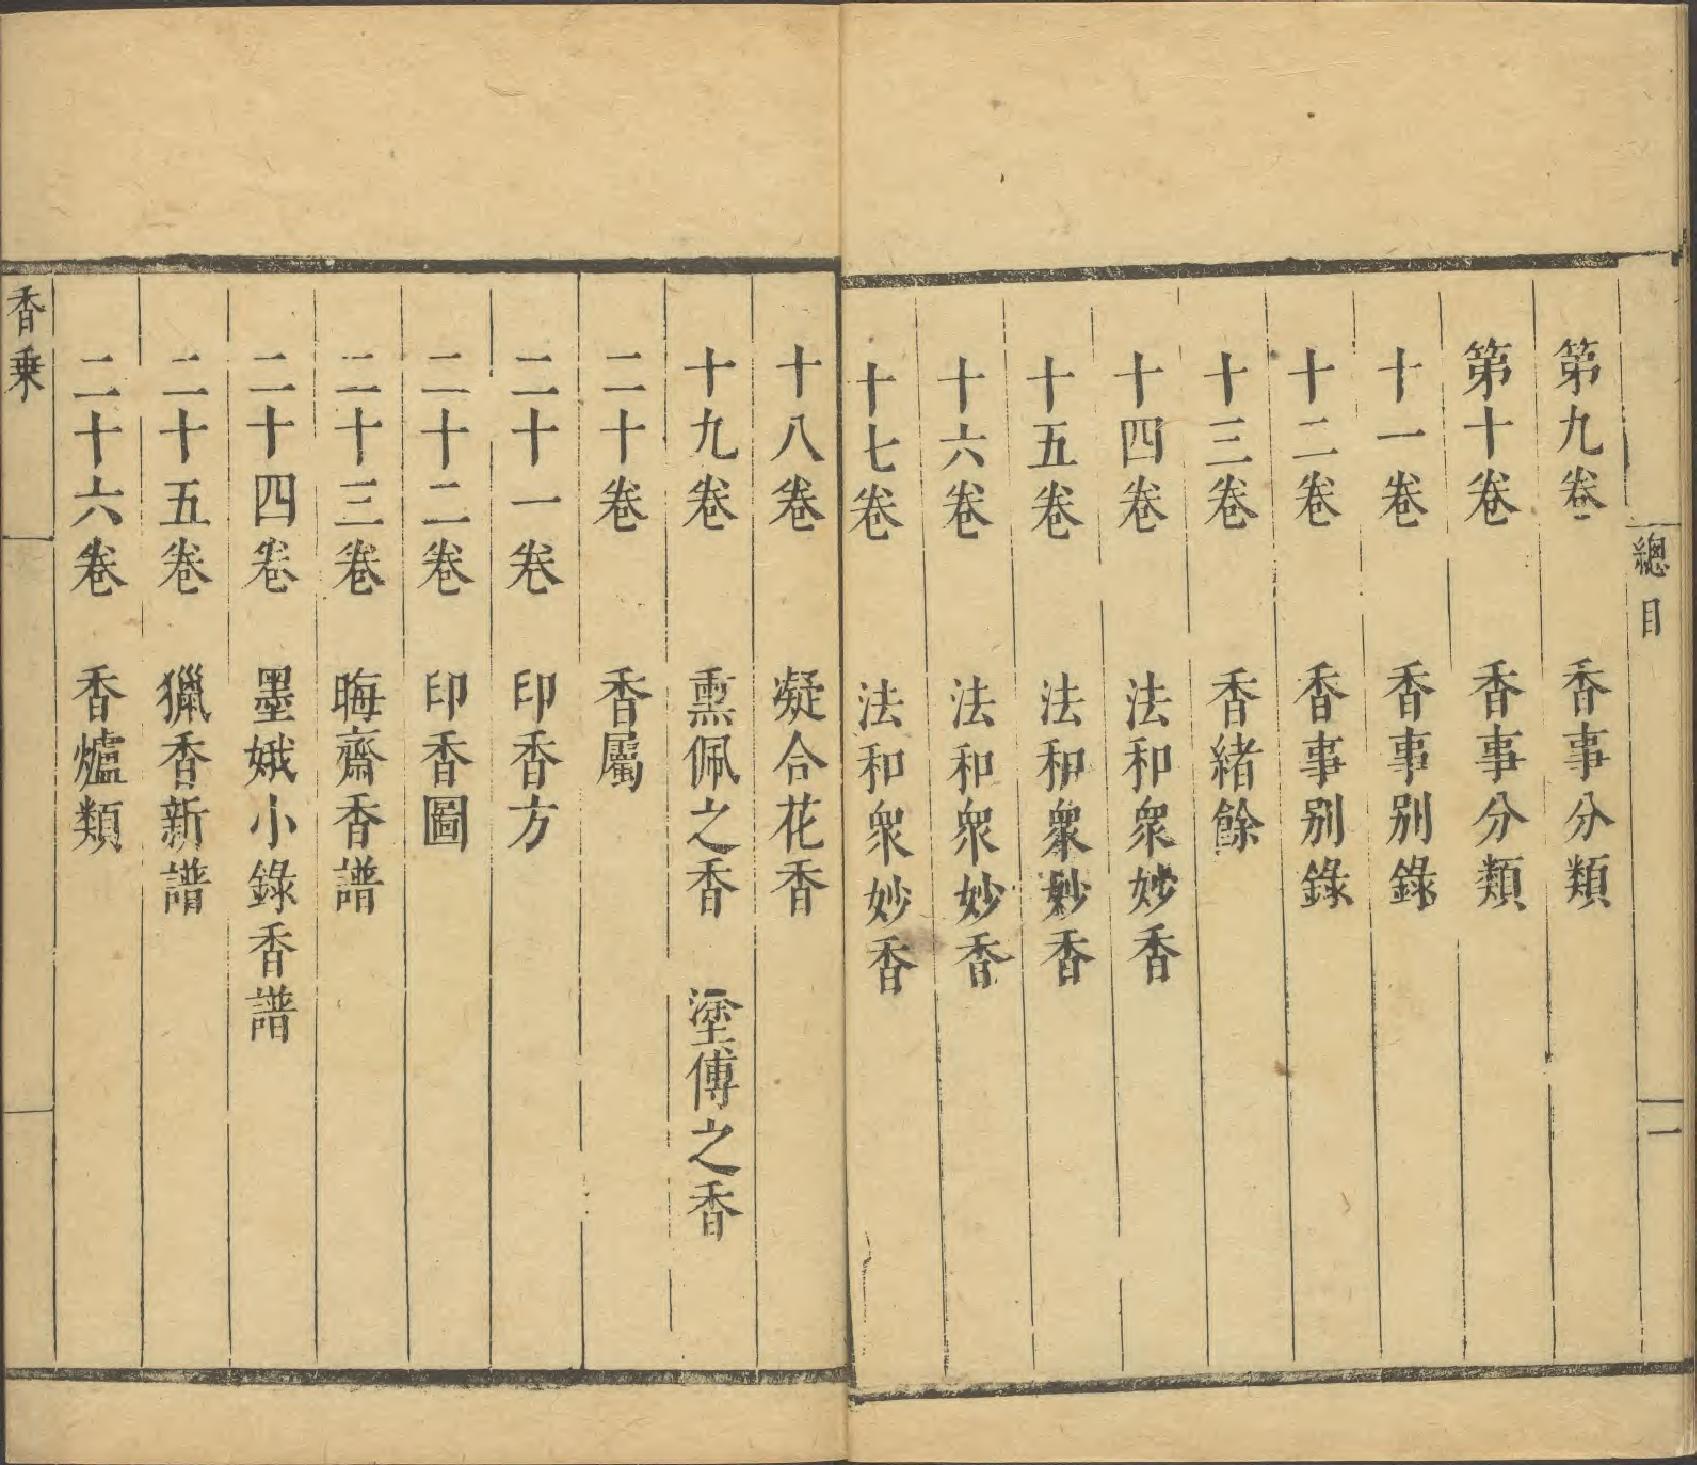 總目
一
第九卷 香事分類
第十卷 香事分類
十一卷 香事別錄
十二卷 香事别錄
十三卷 香緒餘
十四卷 法和衆妙香
十五卷 法和衆妙香
十六卷 法和衆妙香
十七卷 法和衆妙香
十八卷 凝合花香
十九卷 熏佩之香 塗傅之香
二十卷 香屬
二十一卷 印香方
二十二卷 印香圖
二十三卷 晦齋香譜
二十四卷 墨娥小錄香譜
二十五卷 獵香新譜
二十六卷 香爐類
香乗